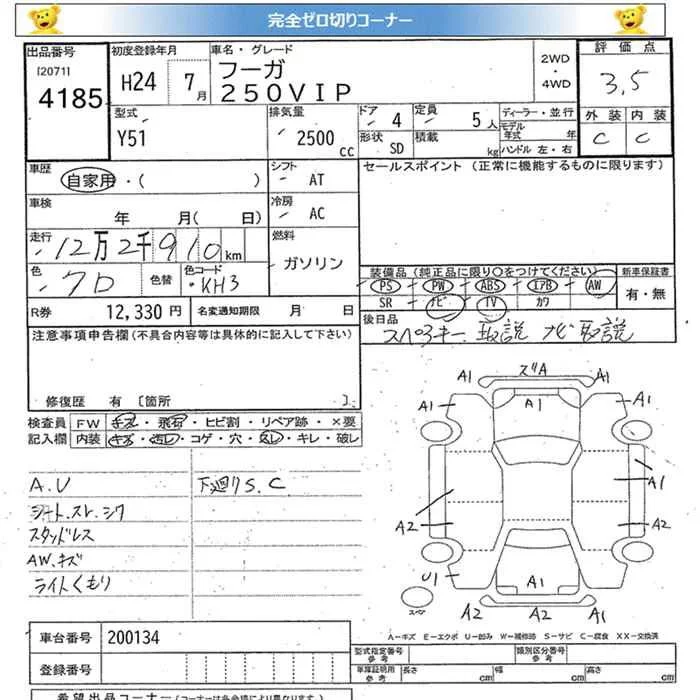 完全ゼロ切りコーナー
出品番号
[2071]
4185
初度登録年月
H24 7月
車名・グレード
フーガ
250VIP
2WD
・
4WD
評価点
3.5
外装 内装
C C
型式
Y51
排気量
2500 cc
ドア 4
定員 5人
形状 SD
積載 kg
ディーラー・並行
モデル年式 年
ハンドル 左・右
車歴
自家用・( )
車検
年 月( 日)
走行
12万2千910km
色
クロ
色替
色コード
KH3
シフト
AT
冷房
AC
燃料
ガソリン
セールスポイント (正常に機能するものに限ります)
装備品(純正品に限り○をつけてください)
PS PW ABS エアB AW
SR ナビ TV カワ
新車保証書
有・無
R券 12,330円
名変通知期限 月 日
後日品
スペアキー 取説 ナビ取説
注意事項申告欄(不具合内容等は具体的に記入して下さい)
修復歴 有 [箇所 ]
検査員記入欄
FW キズ・飛石・ヒビ割・リペア跡・×要
内装 キズ・汚レ・コゲ・穴・スレ・キレ・破レ
A.U
シート.スレ.シワ
スタッドレス
AW.キズ
ライトくもり
下廻りS.C
ズリA
A1 A1
A1 A1 A1
A1
A2 A2
U1 A1
スペア
A2 A2 A1
A-キズ E-エクボ U-凹み W-補修跡 S-サビ C-腐食 XX-交換済
車台番号 200134
登録番号
型式指定番号 参考
類別区分番号 参考
車庫証明用 参考
長さ cm 幅 cm 高さ cm
希望出品コーナー